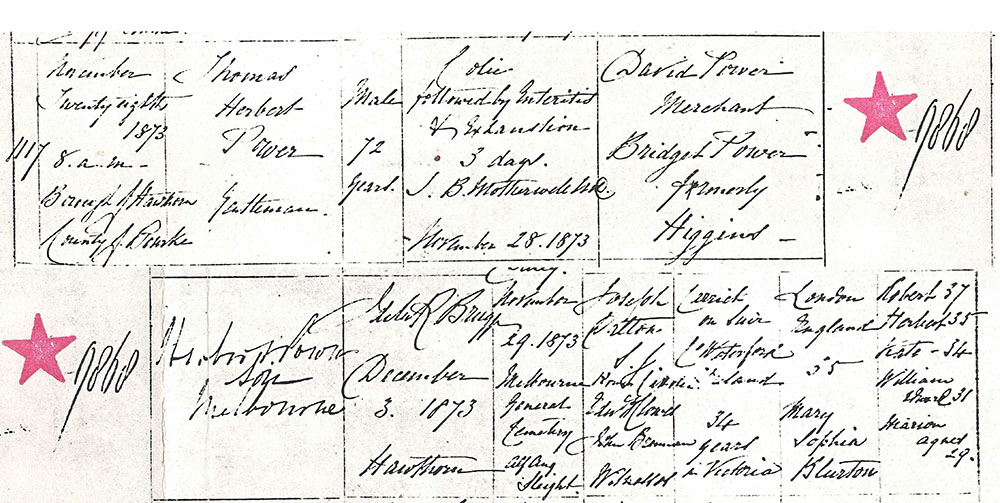 1117
November
Twenty eighth
1873
8. a.m.
Borough of Hawthorn
County of Bourke
Thomas
Herbert
Power
Gentleman.
Male
72
Years.
Colic
followed by Enteritis
& Exhaustion
3 days.
J. B. Motherwell M.D.
November 28. 1873
David Power
Merchant
Bridget Power
formerly
Higgins
9868
9868
Herbert Power
Son
Melbourne
December
3. 1873
Hawthorn
November
29. 1873
Melbourne
General
Cemetery
Sleight.
Joseph
Dalton
S. J.
Roman Catholic
Witnesses
Carrick
on Suir
Waterford
Ireland
34
years
in Victoria
London
England
35
Mary
Sophia
Blurton
Robert 37
Herbert 35
Kate - 34
William
Edward 31
Marion
Agnes
29.